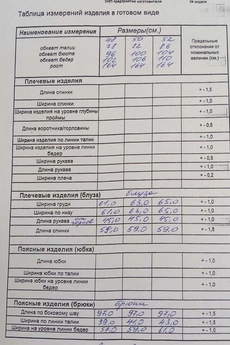 Таблица измерений изделия в готовом виде
Наименование измерения Размеры(см.) Предельные отклонения от номинальных величин (см.)
48 50 52
обхват талии 78 82 86
обхват бюста 96 100 104
обхват бедер 102 106 110
рост 164 164 164
Плечевые изделия
Длина спинки + - 1,5
Ширина спинки + - 1,0
Ширина изделия на уровне глубины проймы + - 1,0
Длина воротника/горловины + - 0,5
Ширина изделия по линии талии + - 1,0
Ширина изделия на уровне линии бедер + - 1,0
Ширина рукава + - 0,5
Длина рукава + - 1,0
Ширина плеча + - 0,2
Плечевые изделия (блуза) блуза
Ширина груди 61,0 63,0 65,0 + - 1,0
Ширина по низу 61,0 63,0 65,0 + - 1,0
Длина рукава 45,0 45,0 45,0 + - 1,0
Длина спинки 59,0 59,0 59,0 + - 1,5
Поясные изделия (юбка)
Длина юбки + - 1,0
Ширина юбки по линии талии + - 1,0
Ширина юбки на уровне линии бедер + - 1,0
Поясные изделия (брюки) брюки
Длина по боковому шву 97,0 97,0 + - 1,5
Ширина по линии талии 39,0 41,0 43,0 + - 1,3
Ширина на уровне линии бедер 59,0 61,0 + - 1,0